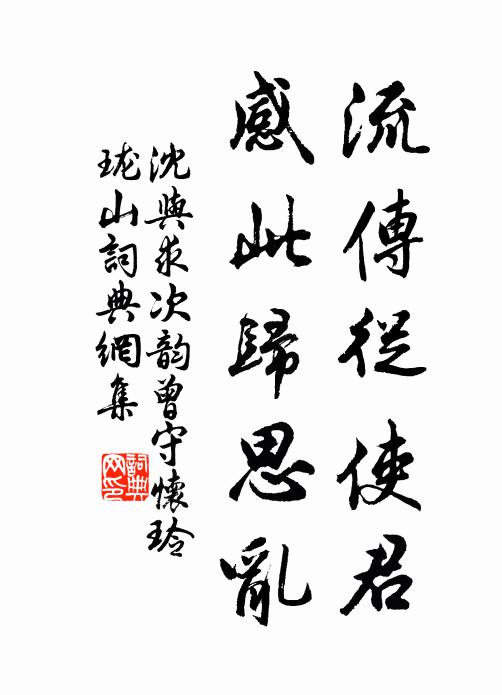 流傳從使君
感此歸思亂
沈與求次韵曾守懷玲
瓏山詞典網集
詞典网印